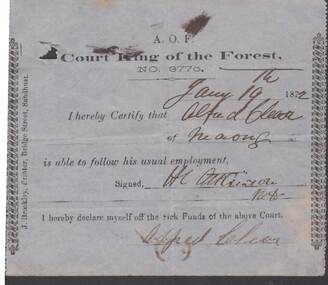 A. O. F.
Court King of the Forest,
NO. 3770.
Jany 19th 1872
I hereby Certify that Alfred
of
is able to follow his usual employment,
Signed, H L Atkinson
I hereby declare myself off the Sick Funds of the above Court.
Alfred
J. Brackly, Printer, Bridge Street, Sandhurst.